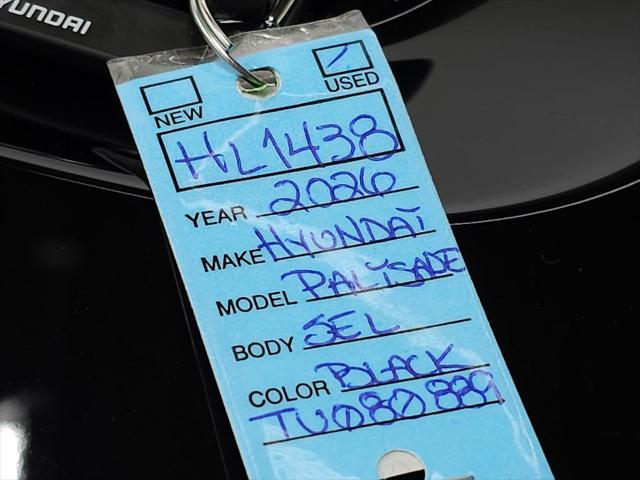 HYUNDAI
NEW USED
HL1438
YEAR 2026
MAKE HYUNDAI
MODEL PALISADE
BODY SEL
COLOR BLACK
TU080889